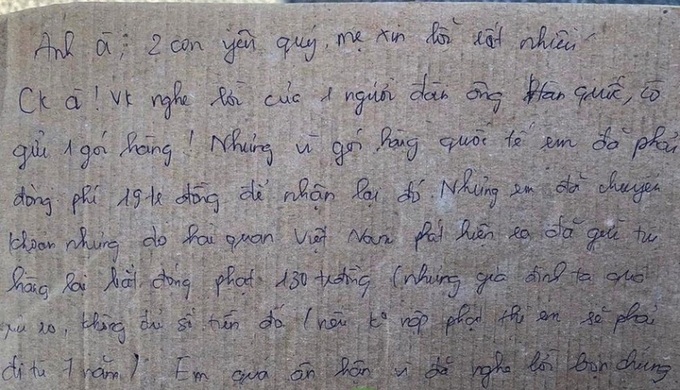 Anh à; 2 con yêu quý, mẹ xin lỗi rất nhiều
CK à! VK nghe lời của 1 người đàn ông Hàn Quốc, có
gửi 1 gói hàng! Nhưng vì gói hàng quốc tế em đã phải
đóng phí 19 tr đồng để nhận lại đó. Nhưng em đã chuyển
khoản nhưng do hải quan Việt Nam phát hiện ra đã giữ
hàng lại bắt đóng phạt 130 tr đồng (nhưng gia đình ta quá
, không đủ số tiền đó (nếu ko nộp phạt thì em sẽ phải
đi tù 7 năm)! Em quá ân hận vì đã nghe lời bọn chúng